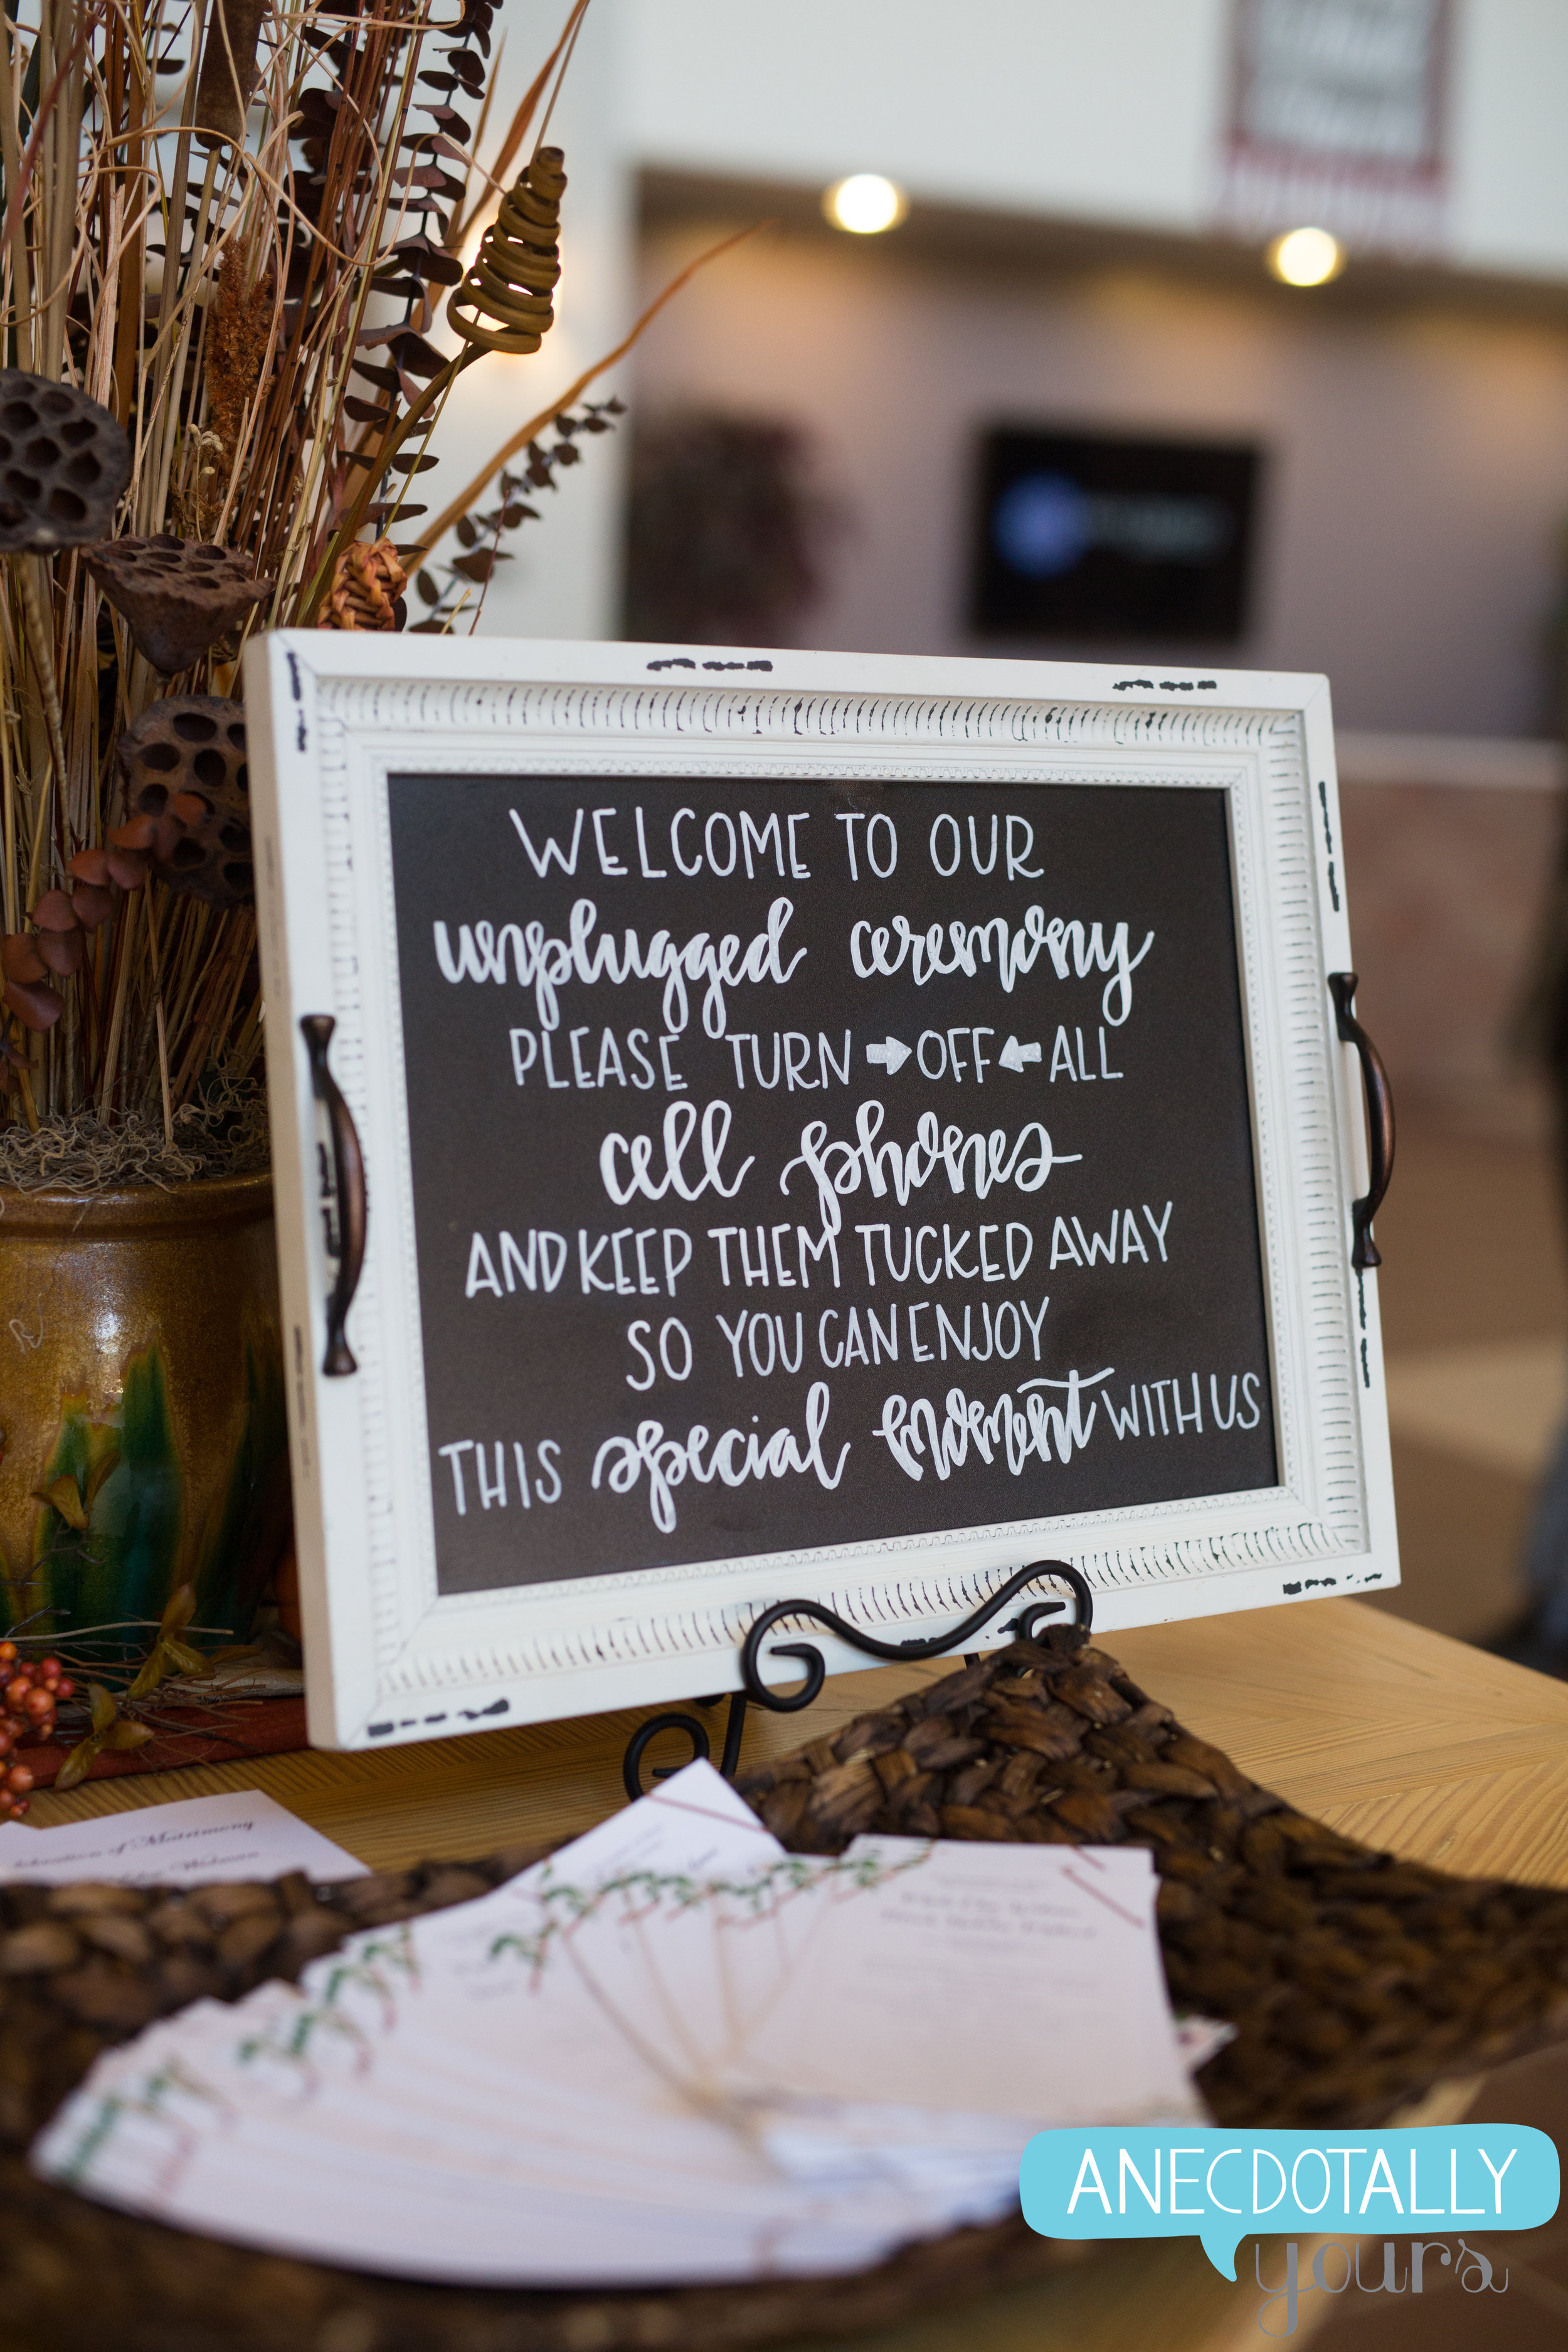 WELCOME TO OUR
unplugged ceremony
PLEASE TURN OFF ALL
cell phones
AND KEEP THEM TUCKED AWAY
SO YOU CAN ENJOY
THIS special moment WITH US
of Matrimony
ANECDOTALLY
yours